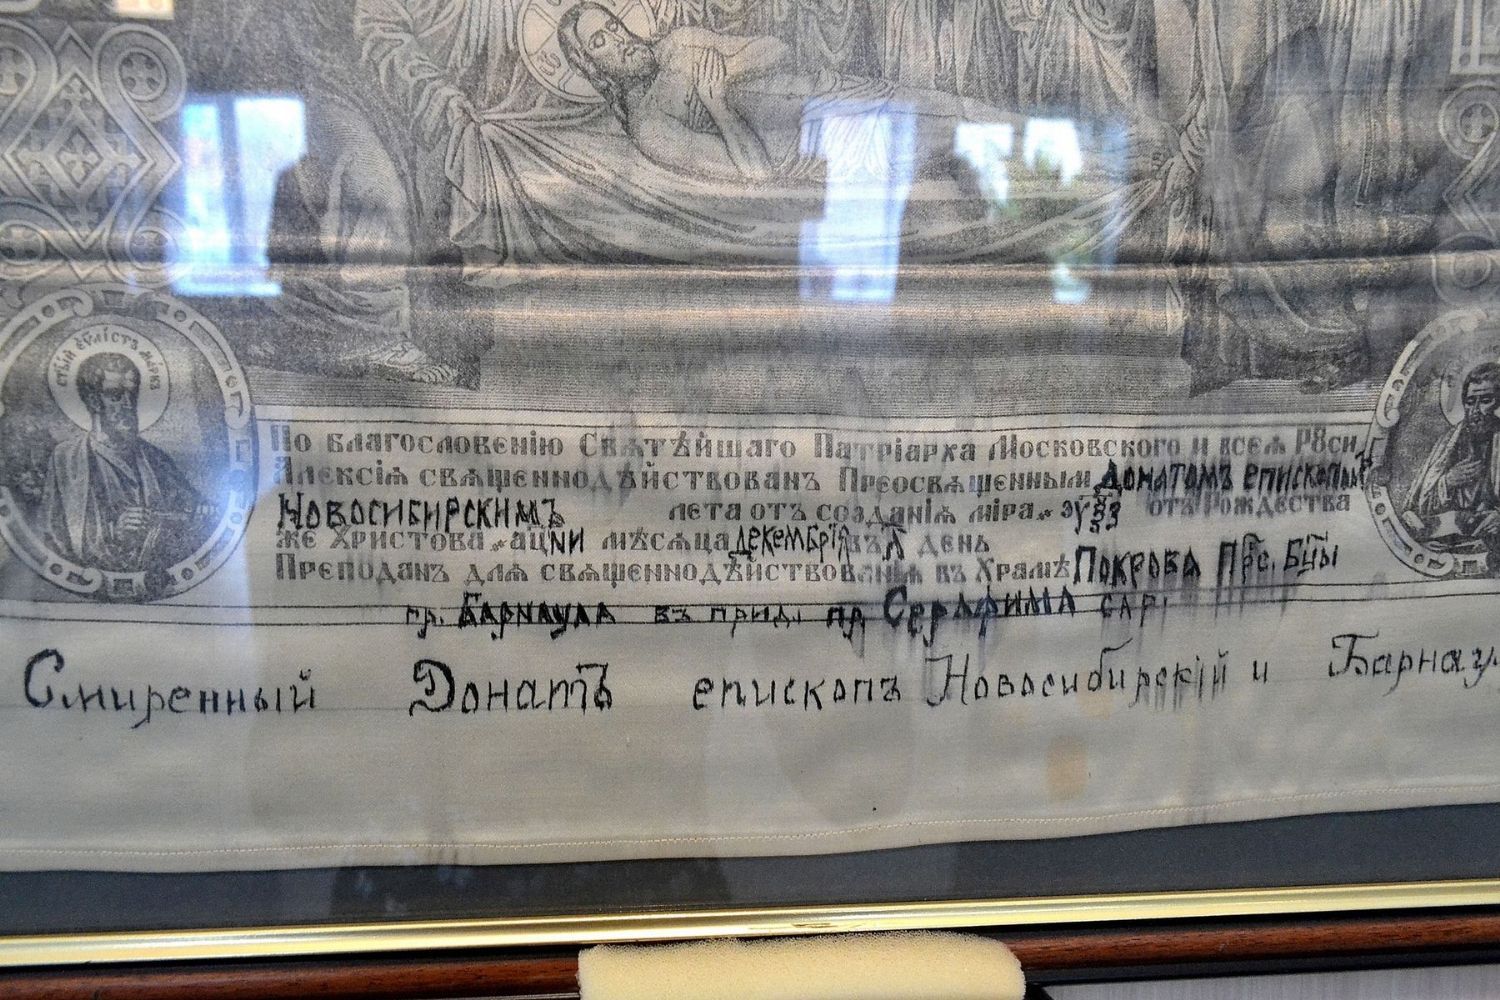 стый еvлістъ марк
По благословенію Свѧтѣйшаго Патріарха Московскаго и всеѧ Рꙋси
Алексіѧ свѧщеннодѣйствованъ Преосвѧщеннымъ Донатомъ епископомъ
Новосибирскимъ лета отъ созданіѧ міра от Рождества
же Христова ац҃ни мѣсѧца декембріѧ въ день
Преподанъ длѧ свѧщеннодѣйствованіѧ въ Храмѣ Покрова Прс. Бцы
гр. Барнаула въ прид. пр Серафима сар.
Смиренный Донатъ епископъ Новосибирскій и Барнаул